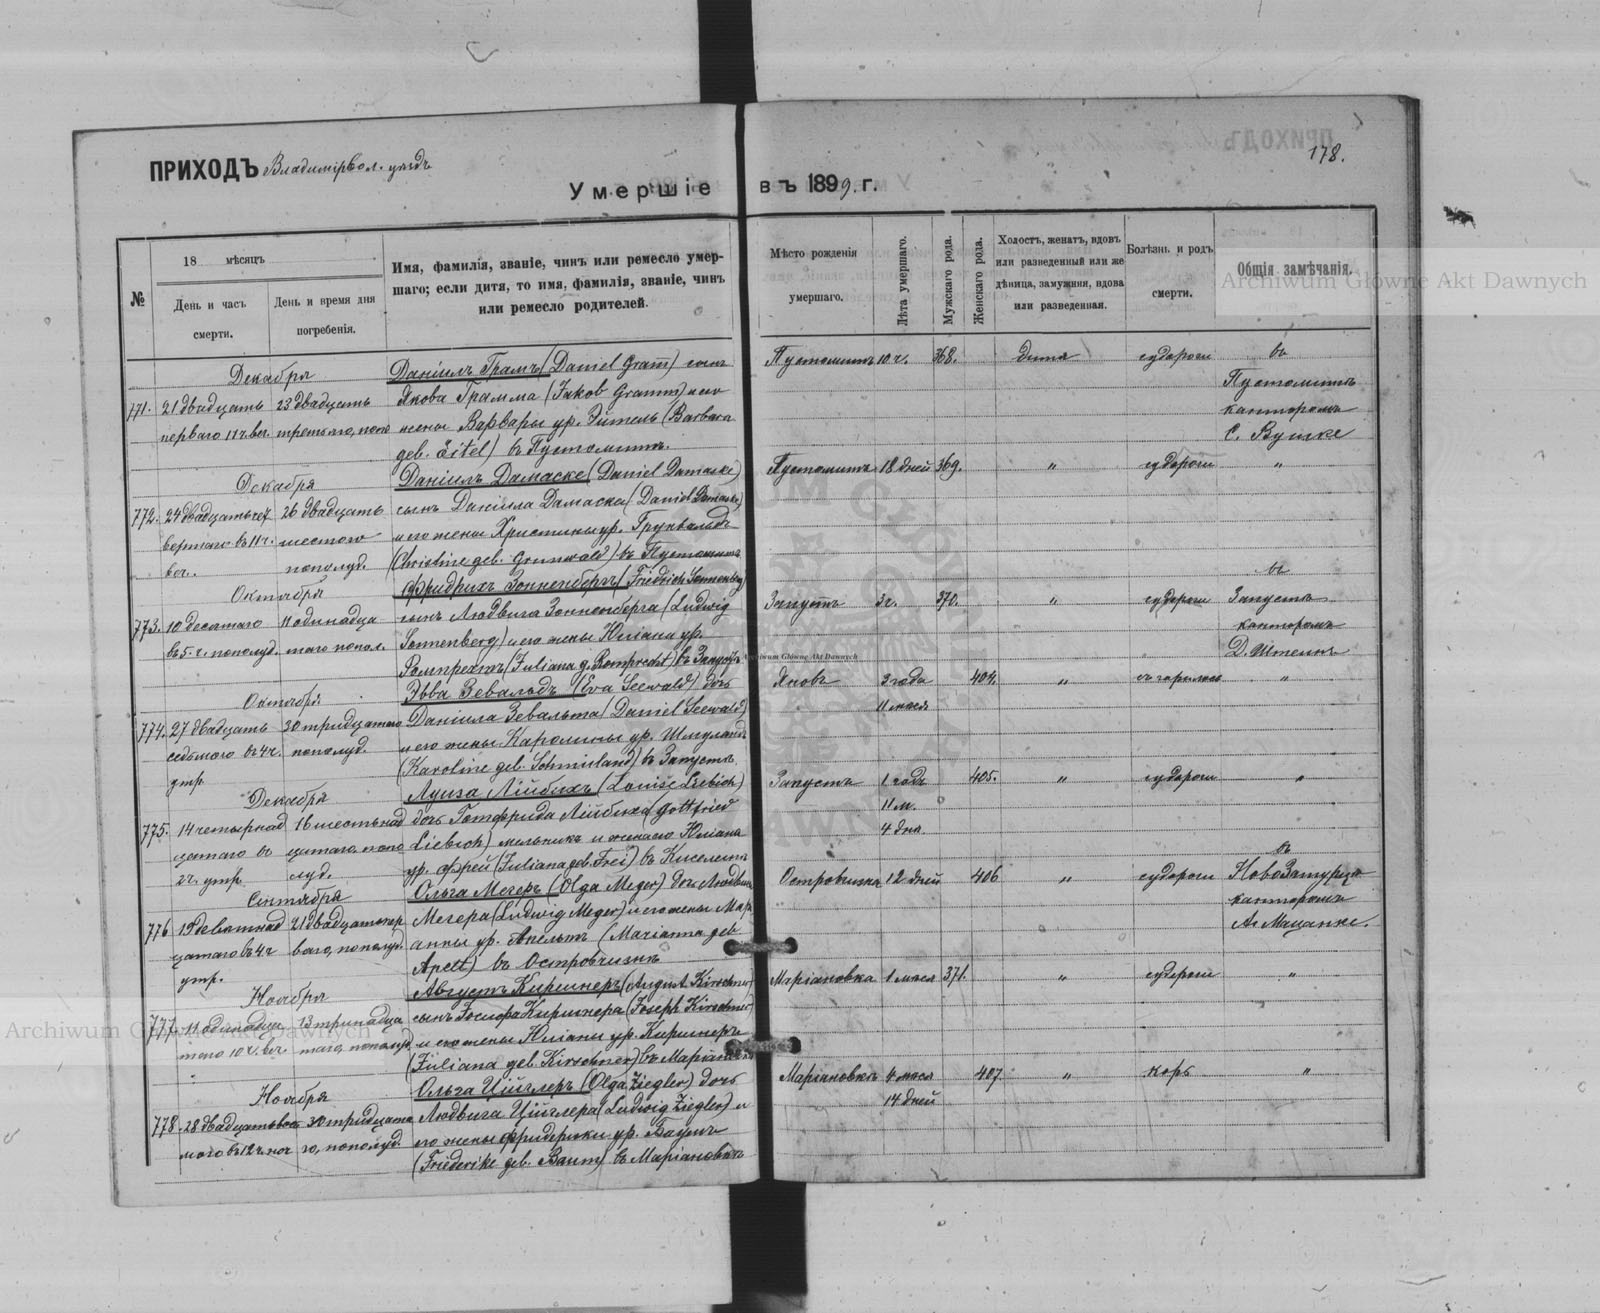 ПРИХОДЪ Владимірвол. уѣздъ
178.
Умершіе въ 1899. г.
№
18 мѣсяцъ
День и часъ смерти.
День и время дня погребенія.
Имя, фамилія, званіе, чинъ или ремесло умер-
шаго; если дитя, то имя, фамилія, званіе, чинъ
или ремесло родителей.
Мѣсто рожденія
умершаго.
Лѣта умершаго.
Мужскаго рода.
Женскаго рода.
Холостъ, женатъ, вдовъ
или разведенный или же
дѣвица, замужняя, вдова
или разведенная.
Болѣзнь и родъ
смерти.
Общія замѣчанія.
Archiwum Główne Akt Dawnych
Декабря
Даніилъ Грамъ (Daniel Gram̅) сынъ
Пустомитъ 10 ч. 368. дитя судороги въ
771. 21 двадцать 23 двадцать Якова Грамма (Jakob Gramm) и его
Пустомитъ
перваго 11 ч. веч. третьяго, попо жены Варвары ур. Эйтель (Barbara
канторомъ
geb. Eitel) въ Пустомитъ.
С. Вушке
Декабря
Даніилъ Дамаске (Daniel Damaske)
Пустомитъ 18 дней 369. " судороги "
772. 24 двадцать чет 26 двадцать сынъ Даніила Дамаска (Daniel Damaske)
вертаго въ 11 ч. шестого и его жены Христины ур. Грунвальдъ
веч. пополуд. (Christine geb. Grunwald) въ Пустомитъ
Октября
Фридрихъ Зонненбергъ (Friedrich Sonnenberg)
въ
773. 10 десятаго 11 одинадца сынъ Людвига Зонненберга (Ludwig
Запустъ 3 г. 370. " судороги Запустъ
въ 5. ч. пополуд. таго попол. Sonnenberg) и его жены Юліана ур.
канторомъ
Ромпрехтъ (Juliana g. Romprecht) въ Запустъ
Д. Штелнъ
Archiwum Główne Akt Dawnych
Октября
Эвва Зевальдъ (Eva Seewald) дочь
Яновъ 3 года 404. " "
11 мсяц
774. 27 двадцать 30 тридцатаго Даніила Зевальта (Daniel Seewald)
седьмого въ 4 ч. пополуд. и его жены Каролины ур. Шмуландъ
утр. (Karoline geb. Schmuland) въ Запустъ
Декабря
Луиза Лійбихъ (Louise Liebich)
Запустъ 1 годъ 405. " судороги "
11 м.
4 дня.
775. 14 четырнад 16 шестьнад дочь Готфрида Лійбиха (Gottfried
цатаго въ цатаго, попо Liebich) мельникъ и жена его Юліана
2 ч. утр. луд. ур. Фрей (Juliana geb. Frei) въ Киселинъ
Сентября
Ольга Мегеръ (Olga Meger) дочь Людвига
въ
Островчизна 12 дней 406 " судороги НовоЗатурцы
776 19 девятнад 21 двадцать пер Мегера (Ludwig Meger) и его жены Мар
канторомъ
цатаго въ 4 ч ваго, пополуд. анны ур. Апельтъ (Marianna geb
А. Мацанке.
утр. Apelt) въ Островчизнъ
Ноября
Августъ Киршнеръ (August Kirschner)
Маріановка 1 мсяц 371. " судороги "
777. 11 одинадца 13 тринадца сынъ Іосифа Киршнера (Joseph Kirschner)
таго 10 ч. веч. таго, пополуд. и его жены Юліаны ур. Киршнеръ
(Juliana geb Kirschner) въ Маріановкъ
Archiwum Główne Akt Dawnych
Ноября
Ольга Ційглеръ (Olga Ziegler) дочь
Маріановкъ 4 мсяц 407. " корь "
14 дней
778. 28 двадцать вось 30 тридцата Людвига Ційглера (Ludwig Ziegler) и
мого въ 12 ч. ноч го, пополуд. его жены Фридерики ур. Баумъ
(Friederike geb. Baum) въ Маріановкъ